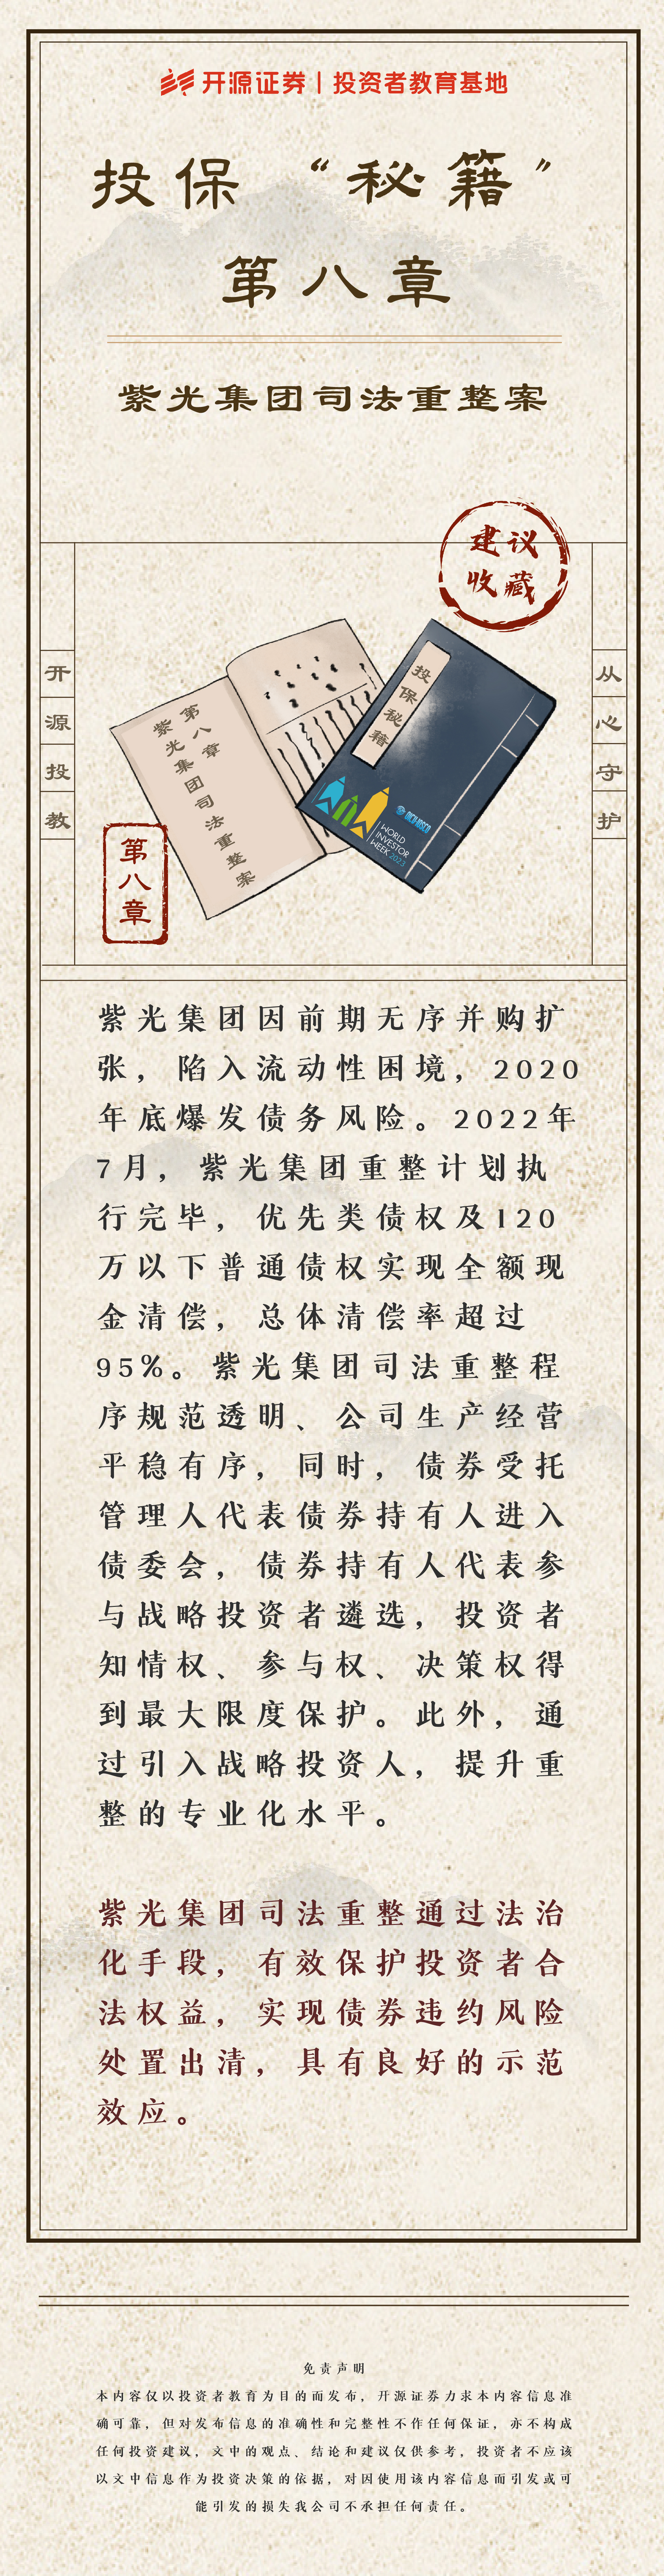 开源证券 | 投资者教育基地
投保“秘籍”
第八章
紫光集团司法重整案
建议
收藏
开源投教
从心守护
第八章
紫光集团司法重整案
投保秘籍
WORLD
INVESTOR
WEEK 2023
第八章
紫光集团因前期无序并购扩
张，陷入流动性困境，2020
年底爆发债务风险。2022年
7月，紫光集团重整计划执
行完毕，优先类债权及120
万以下普通债权实现全额现
金清偿，总体清偿率超过
95%。紫光集团司法重整程
序规范透明、公司生产经营
平稳有序，同时，债券受托
管理人代表债券持有人进入
债委会，债券持有人代表参
与战略投资者遴选，投资者
知情权、参与权、决策权得
到最大限度保护。此外，通
过引入战略投资人，提升重
整的专业化水平。
紫光集团司法重整通过法治
化手段，有效保护投资者合
法权益，实现债券违约风险
处置出清，具有良好的示范
效应。
免责声明
本内容仅以投资者教育为目的而发布，开源证券力求本内容信息准
确可靠，但对发布信息的准确性和完整性不作任何保证，亦不构成
任何投资建议，文中的观点、结论和建议仅供参考，投资者不应该
以文中信息作为投资决策的依据，对因使用该内容信息而引发或可
能引发的损失我公司不承担任何责任。